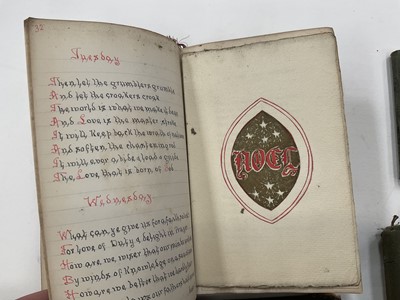 Tuesday
Then let the grumblers grumble
And let the croakers croak
The world is what we make it
And Love is the master stroke
It will keep back the
And soften the chastening rod
It will ever abide be glad
The Love that is born of God
Wednesday
What can ye give us for
For love of Duty & delight in
How are we wiser than
By mindx of Knowledge
How are we better that we
NOEL